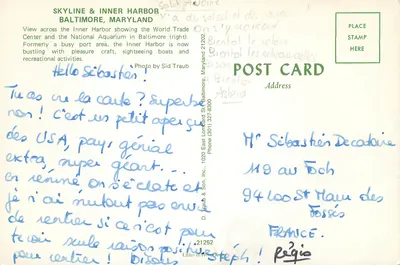 SKYLINE & INNER HARBOR
BALTIMORE, MARYLAND
View across the Inner Harbor showing the World Trade
Center and the National Aquarium in Baltimore (right).
Formerly a busy port area, the Inner Harbor is now
bustling with pleasure craft, sightseeing boats and
recreational activities.
Photo by Sid Traub
Hello Sébastien!
Tu as vu la carte? Superbe
non! C'est un petit aperçu
des USA, pays génial
extra, super géant...
en résumé on s'éclate et
je n'ai surtout pas envie
de rentrer si ce n'est pour
te voir seule raison positive
pour rentrer! Bisous
Steph!
Régis
21292
POST CARD
Address
PLACE
STAMP
HERE
Mr Sébastien Decatoire
119 au Foch
94100 St Maur des
Fossés
FRANCE.